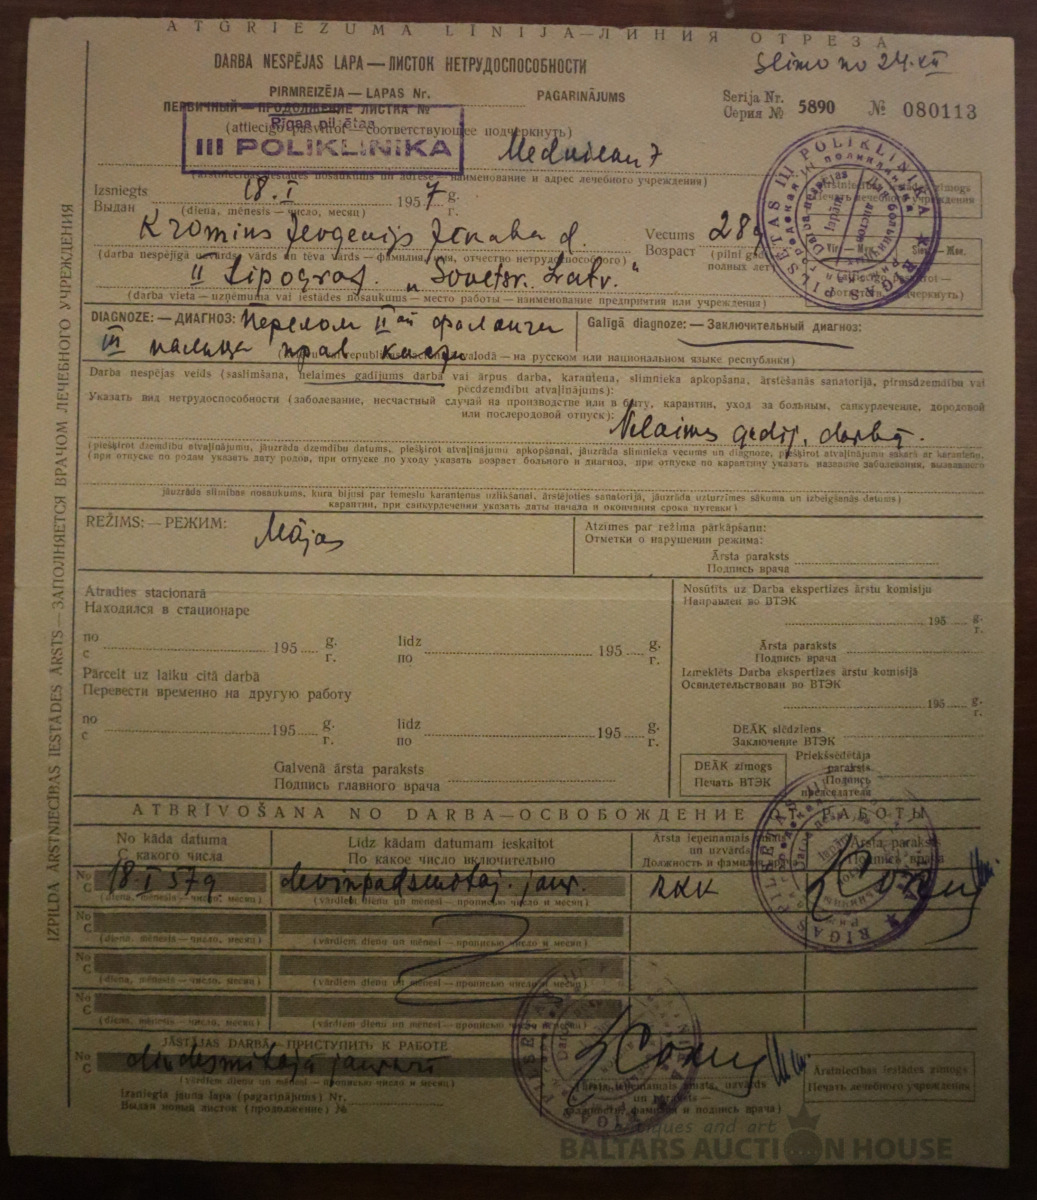 ATGRIEZUMA LĪNIJA — ЛИНИЯ ОТРЕЗА
DARBA NESPĒJAS LAPA — ЛИСТОК НЕТРУДОСПОСОБНОСТИ
Slims no 24.XII
PIRMREIZĒJA — LAPAS Nr. PAGARINĀJUMS
ПЕРВИЧНЫЙ — ПРОДОЛЖЕНИЕ ЛИСТКА №
Serija Nr. Серия № 5890 № 080113
(attiecīgo pasvītrot — соответствующее подчеркнуть)
Rīgas pilsētas
III POLIKLINIKA
(ārstniecības iestādes nosaukums un adrese — наименование и адрес лечебного учреждения)
Izsniegts
Выдан 18.I 1957 g. г.
(diena, mēnesis — число, месяц)
Kromins Jevgenijs d.
Vecums
Возраст 28
(darba nespējīgā uzvārds, vārds un tēva vārds — фамилия, имя, отчество нетрудоспособного)
(pilni gadi
полных лет)
II Tipograf. „Sovetsk. Latv."
(darba vieta — uzņēmuma vai iestādes nosaukums — место работы — наименование предприятия или учреждения)
DIAGNOZE: — ДИАГНОЗ: Перелом II ой фаланги
III пальца прав кисти
Galīgā diagnoze: — Заключительный диагноз:
valodā — на русском или национальном языке республики)
Darba nespējas veids (saslimšana, nelaimes gadījums darbā vai ārpus darba, karantēna, slimnieka apkopšana, ārstēšanās sanatorijā, pirmsdzemdību vai
pēcdzemdību atvaļinājums):
Указать вид нетрудоспособности (заболевание, несчастный случай на производстве или в быту, карантин, уход за больным, санкурлечение, дородовой
или послеродовой отпуск):
Nelaimes gadīj. darbā.
(piešķirot dzemdību atvaļinājumu, jāuzrāda dzemdību datums, piešķirot atvaļinājumu apkopšanai, jāuzrāda slimnieka vecums un diagnoze, piešķirot atvaļinājumu sakarā ar karantēnu,
(при отпуске по родам указать дату родов, при отпуске по уходу указать возраст больного и диагноз, при отпуске по карантину указать название заболевания, вызвавшего
jāuzrāda slimības nosaukums, kura bijusi par iemeslu karantēnas uzlikšanai, ārstējoties sanatorijā, jāuzrāda uzturzīmes sākuma un izbeigšanās datums)
карантин, при санкурлечении указать даты начала и окончания срока путевки)
REŽĪMS: — РЕЖИМ: Mājas
Atzīmes par režīma pārkāpšanu:
Отметки о нарушении режима:
Ārsta paraksts
Подпись врача
Atradies stacionarā
Находился в стационаре
no
с 195 g. г. līdz
по 195 g. г.
Pārcelt uz laiku citā darbā
Перевести временно на другую работу
no
с 195 g. г. līdz
по 195 g. г.
Galvenā ārsta paraksts
Подпись главного врача
Nosūtīts uz Darba ekspertīzes ārstu komisiju
Направлен во ВТЭК
195 g. г.
Ārsta paraksts
Подпись врача
Izmeklēts Darba ekspertīzes ārstu komisijā
Освидетельствован во ВТЭК
195 g. г.
DEĀK slēdziens
Заключение ВТЭК
DEĀK zīmogs
Печать ВТЭК
Priekšsēdētāja
paraksts
Подпись
председателя
ATBRĪVOŠANA NO DARBA — ОСВОБОЖДЕНИЕ ОТ РАБОТЫ
No kāda datuma
С какого числа
Līdz kādam datumam ieskaitot
По какое число включительно
Ārsta ieņemamais amats
un uzvārds
Должность и фамилия врача
Ārsta paraksts
Подпись врача
No
С 18.I 57g
(diena, mēnesis — число, месяц)
deviņpadsmitaj. janv.
(vārdiem dienu un mēnesi — прописью число и месяц)
RKK
No
С
(diena, mēnesis — число, месяц)
(vārdiem dienu un mēnesi — прописью число и месяц)
No
С
(diena, mēnesis — число, месяц)
(vārdiem dienu un mēnesi — прописью число и месяц)
No
С
(diena, mēnesis — число, месяц)
(vārdiem dienu un mēnesi — прописью число и месяц)
JĀSTĀJAS DARBĀ — ПРИСТУПИТЬ К РАБОТЕ
No
С divdesmitajā janvarī
(vārdiem dienu un mēnesi — прописью число и месяц)
Izsniegta jauna lapa (pagarinājums) Nr.
Выдан новый листок (продолжение) №
(ārsta ieņemamais amats, uzvārds
un paraksts —
должность, фамилия и подпись врача)
Ārstniecības iestādes zīmogs
Печать лечебного учреждения
IZPILDA ĀRSTNIECĪBAS IESTĀDES ĀRSTS — ЗАПОЛНЯЕТСЯ ВРАЧОМ ЛЕЧЕБНОГО УЧРЕЖДЕНИЯ
RIGAS PILSETAS III POLIKLINIKA
antiques and art
BALTARS AUCTION HOUSE